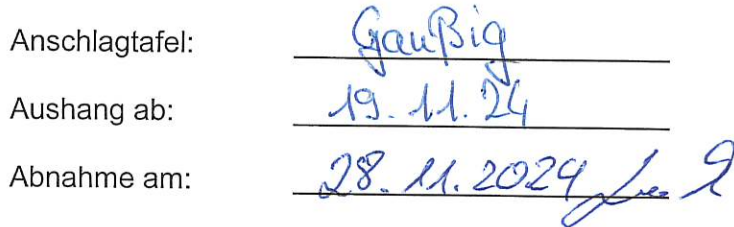 Anschlagtafel: Gaußig
Aushang ab: 19.11.24
Abnahme am: 28.11.2024